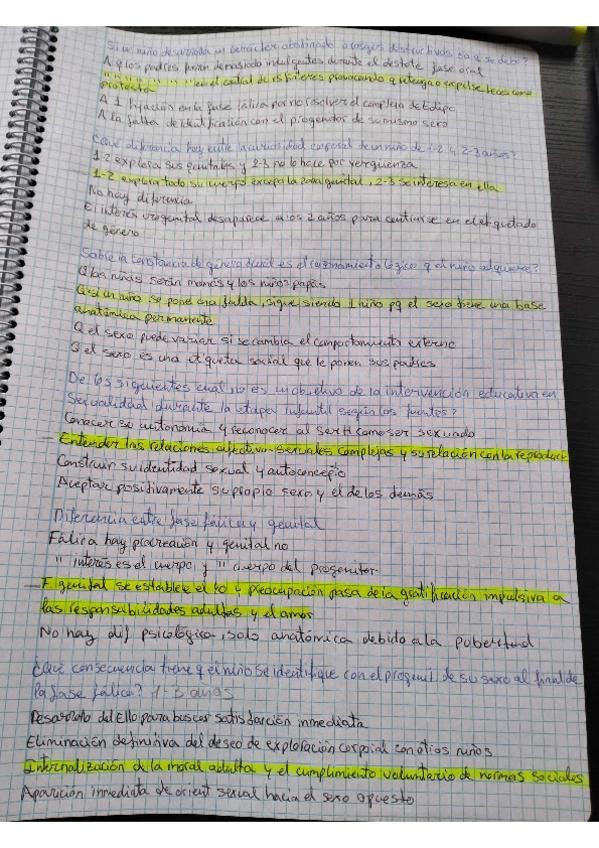 Si un niño desarrolla un carácter obstinado o rasgos destructivos a q se debe?
A q los padres fueron demasiado indulgentes durante el destete fase oral
" " " " " en el control de esfínteres provocando q retenga o expulse heces como
protesta
A 1 fijación en la fase fálica por no resolver el complejo de Edipo
A la falta de identificación con el progenitor de su mismo sexo
¿Qué diferencia hay entre la curiosidad corporal de un niño de 1-2 y 2-3 años?
1-2 explora sus genitales y 2-3 no lo hace por vergüenza
1-2 explora todo su cuerpo excepto la zona genital, 2-3 se interesa en ella
No hay diferencia
El interés urogenital desaparece a los 2 años para centrarse en el etiquetado
de género
Sobre la constancia de género cual es el razonamiento lógico q el niño adquiere?
Q las niñas serán mamás y los niños papás
Q si un niño se pone una falda, sigue siendo 1 niño pq el sexo tiene una base
anatómica permanente
Q el sexo puede variar si se cambia el comportamiento externo
Q el sexo es una etiqueta social que le ponen sus padres
De los siguientes cual no es un objetivo de la intervención educativa en
Sexualidad durante la etapa infantil según los puntos?
Conocer su autonomía y reconocer al ser H como ser sexuado
— Entender las relaciones afectivo-sexuales complejas y su relación con la reproducci
Construir su identidad sexual y autoconcepto
Aceptar positivamente su propio sexo y el de los demás
Diferencia entre fase fálica y genital
Fálica hay procreación y genital no
" interés es el cuerpo y " cuerpo del progenitor
— F genital se establece el yo y preocupación pasa de la gratificación impulsiva a
las responsabilidades adultas y el amor
No hay dif psicológica, solo anatómica debido a la pubertad
¿Qué consecuencia tiene q el niño se identifique con el progenit de su sexo al final de
la fase fálica? 1-3 años
Desarrollo del Ello para buscar satisfacción inmediata
Eliminación definitiva del deseo de exploración corporal con otros niños
Internalización de la moral adulta y el cumplimiento voluntario de normas sociales
Aparición inmediata de orient sexual hacia el sexo opuesto